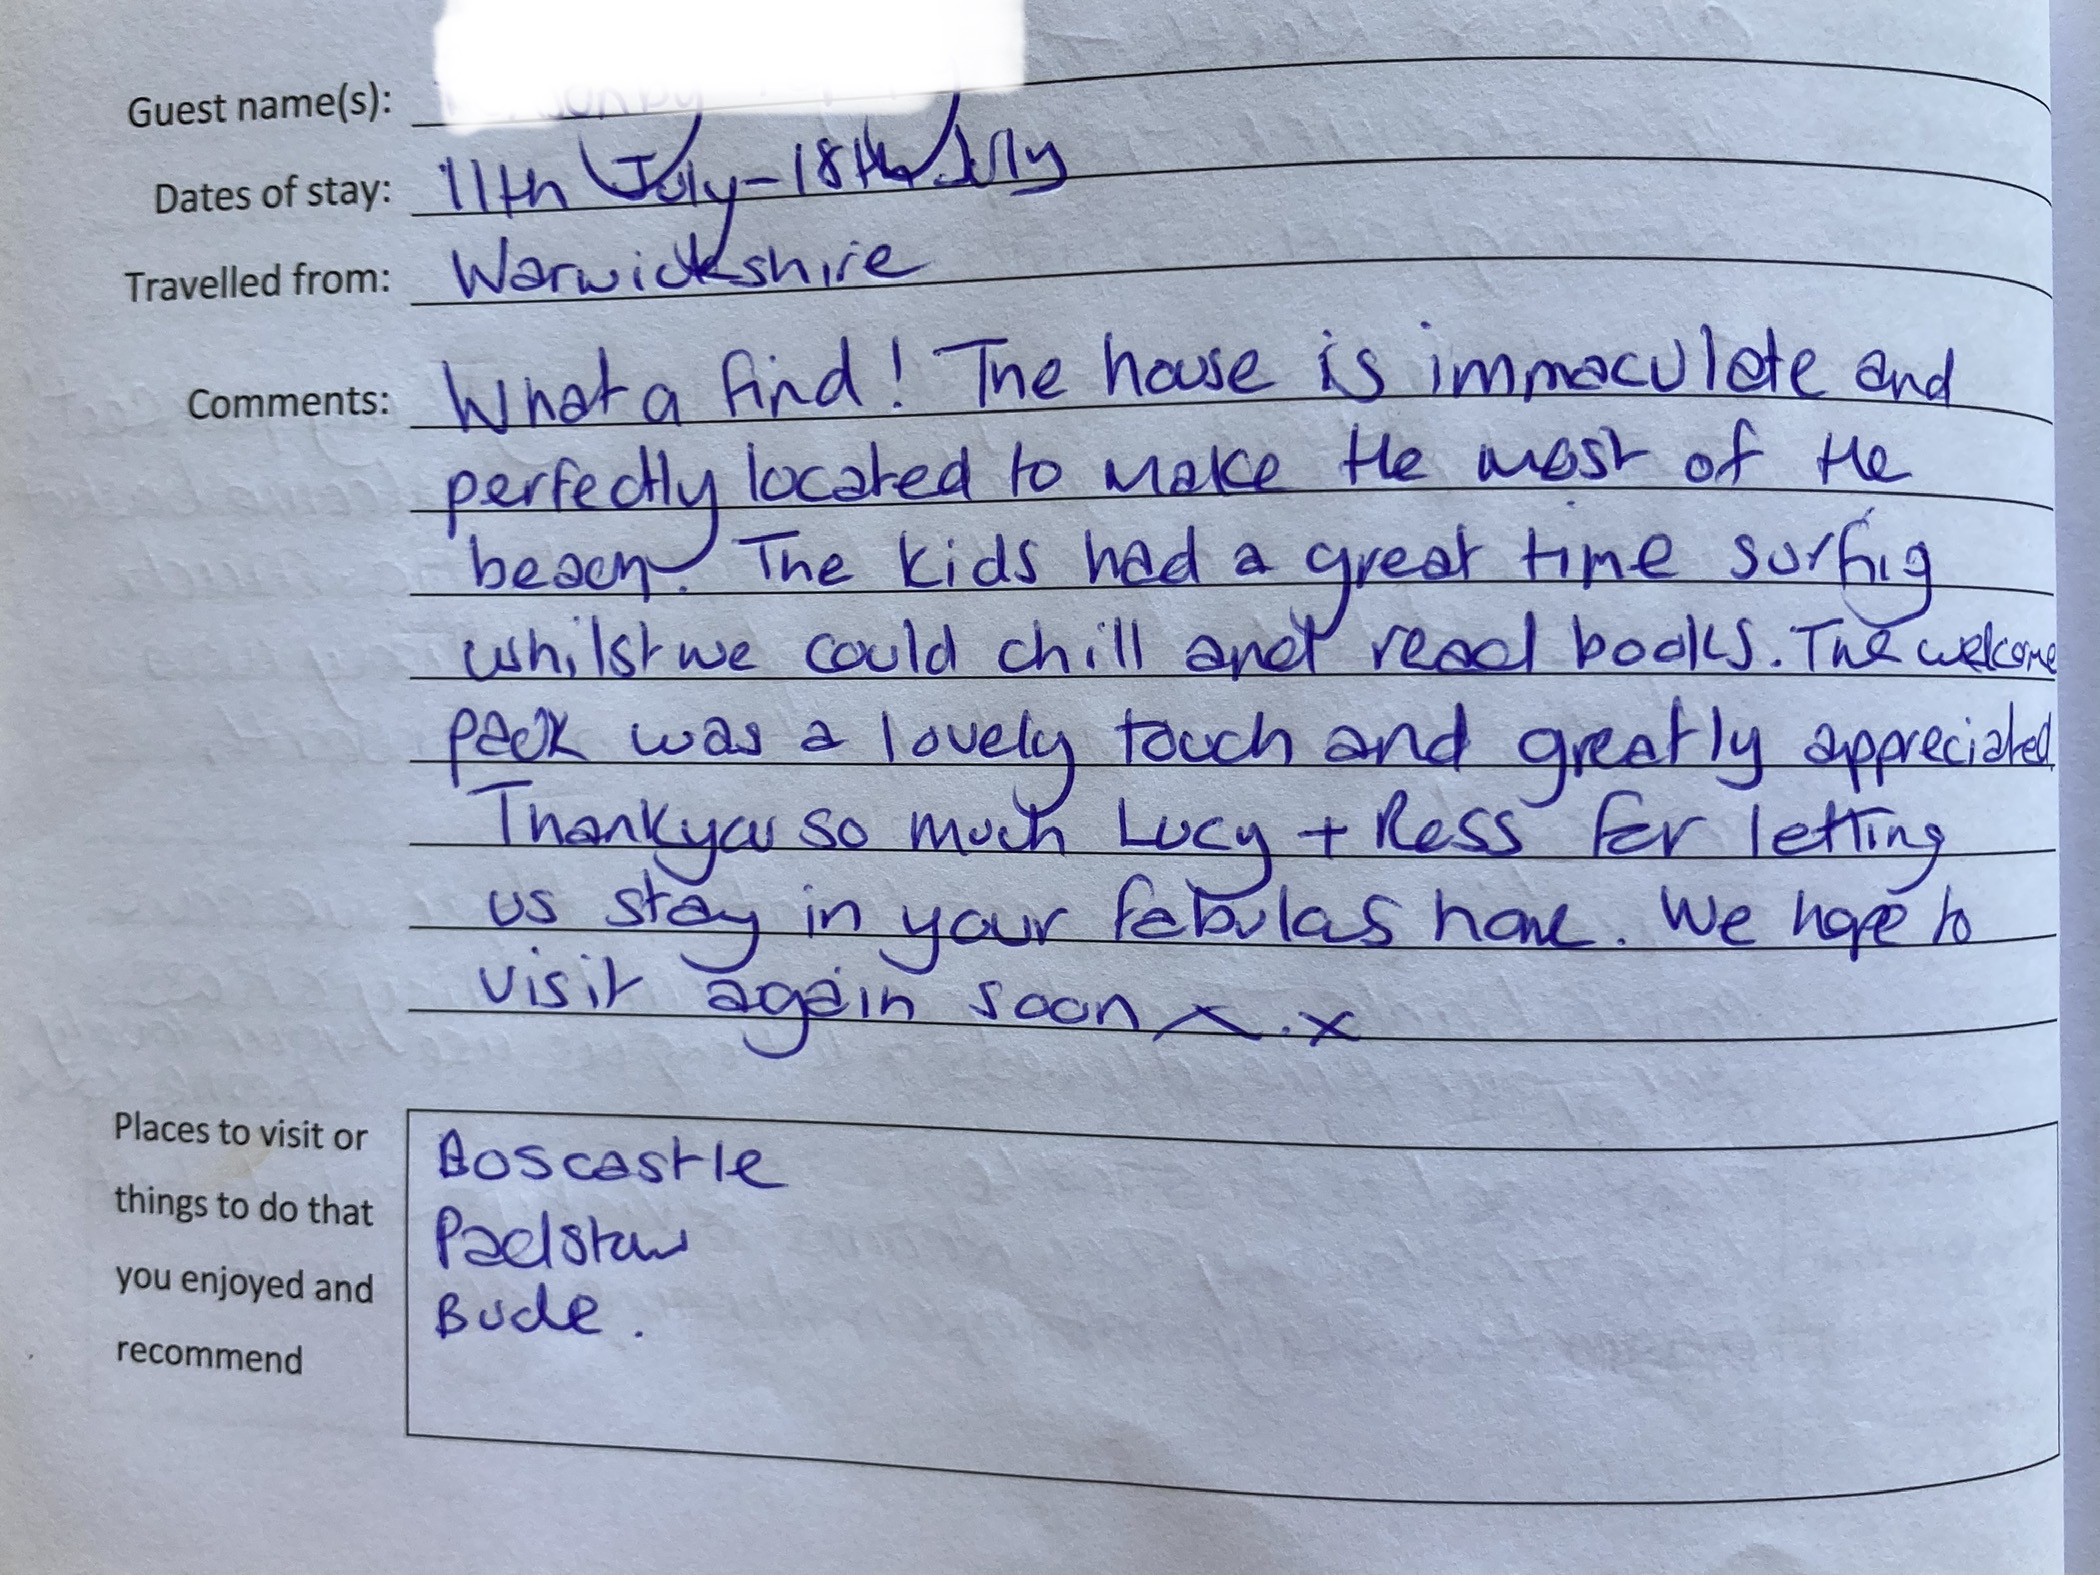 Guest name(s):
Dates of stay: 11th July - 18th July
Travelled from: Warwickshire
Comments: What a find! The house is immaculate and
perfectly located to make the most of the
beach. The kids had a great time surfing
whilst we could chill and read books. The welcome
pack was a lovely touch and greatly appreciated.
Thankyou so much Lucy + Ross for letting
us stay in your fabulous home. We hope to
visit again soon x.x
Places to visit or
things to do that
you enjoyed and
recommend
Boscastle
Padstow
Bude.